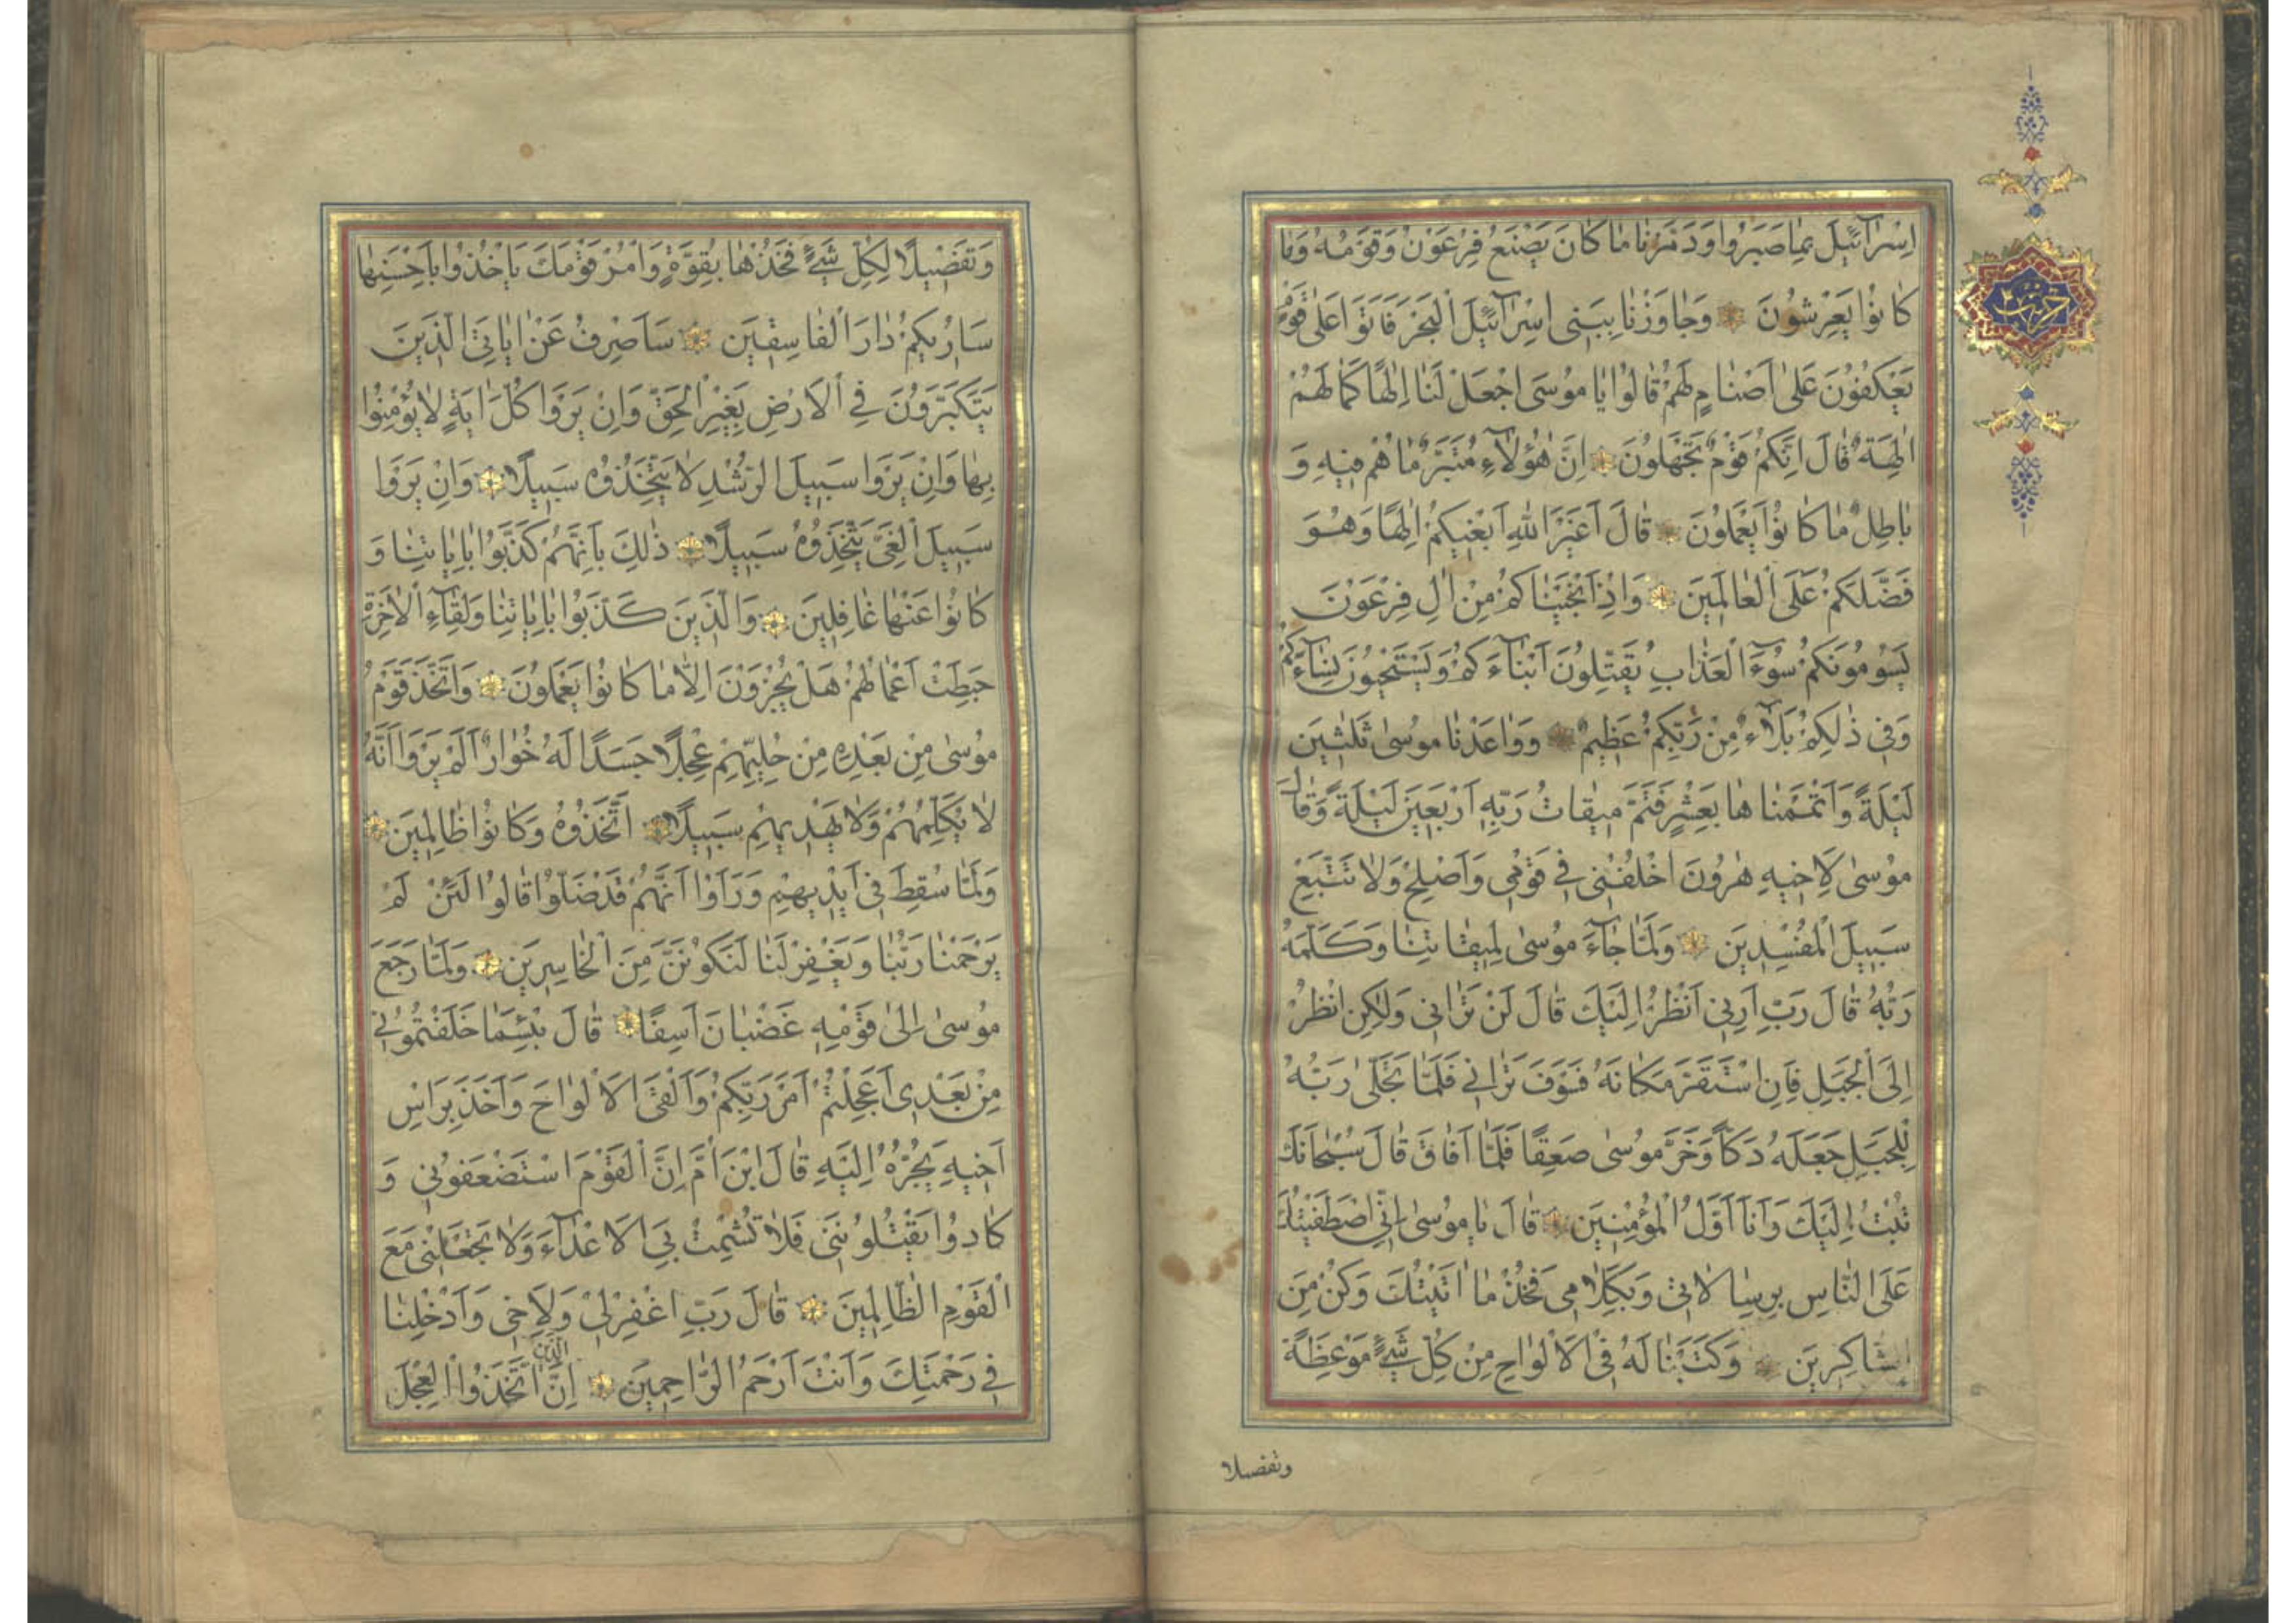 اِسْرَآئٖيلَ بِمٰا صَبَرُوا وَدَمَّرْنٰا مٰا كٰانَ يَصْنَعُ فِرْعَوْنُ وَقَوْمُهُ وَمٰا
كٰانُوا يَعْرِشُونَ وَجٰاوَزْنٰا بِبَنٖى اِسْرٰآئٖيلَ الْبَحْرَ فَاَتَوْا عَلٰى قَوْمٍ
يَعْكُفُونَ عَلٰى اَصْنٰامٍ لَهُمْ قٰالُوا يٰا مُوسَى اجْعَلْ لَنٰا اِلٰهًا كَمٰا لَهُمْ
اٰلِهَةٌ قٰالَ اِنَّكُمْ قَوْمٌ تَجْهَلُونَ اِنَّ هٰؤُلٰآءِ مُتَبَّرٌ مٰا هُمْ فٖيهِ وَ
بٰاطِلٌ مٰا كٰانُوا يَعْمَلُونَ قٰالَ اَغَيْرَ اللّٰهِ اَبْغٖيكُمْ اِلٰهًا وَهُوَ
فَضَّلَكُمْ عَلَى الْعٰالَمٖينَ وَاِذْ اَنْجَيْنٰاكُمْ مِنْ اٰلِ فِرْعَوْنَ
يَسُومُونَكُمْ سُوٓءَ الْعَذٰابِ يُقَتِّلُونَ اَبْنٰآءَكُمْ وَيَسْتَحْيُونَ نِسٰآءَكُمْ
وَفٖى ذٰلِكُمْ بَلٰآءٌ مِنْ رَبِّكُمْ عَظٖيمٌ وَوٰاعَدْنٰا مُوسٰى ثَلٰثٖينَ
لَيْلَةً وَاَتْمَمْنٰاهٰا بِعَشْرٍ فَتَمَّ مٖيقٰاتُ رَبِّهٖ اَرْبَعٖينَ لَيْلَةً وَقٰالَ
مُوسٰى لِاَخٖيهِ هٰرُونَ اخْلُفْنٖى فٖى قَوْمٖى وَاَصْلِحْ وَلٰا تَتَّبِعْ
سَبٖيلَ الْمُفْسِدٖينَ وَلَمّٰا جٰآءَ مُوسٰى لِمٖيقٰاتِنٰا وَكَلَّمَهُ
رَبُّهُ قٰالَ رَبِّ اَرِنٖى اَنْظُرْ اِلَيْكَ قٰالَ لَنْ تَرٰانٖى وَلٰكِنِ انْظُرْ
اِلَى الْجَبَلِ فَاِنِ اسْتَقَرَّ مَكٰانَهُ فَسَوْفَ تَرٰانٖى فَلَمّٰا تَجَلّٰى رَبُّهُ
لِلْجَبَلِ جَعَلَهُ دَكًّا وَخَرَّ مُوسٰى صَعِقًا فَلَمّٰا اَفٰاقَ قٰالَ سُبْحٰانَكَ
تُبْتُ اِلَيْكَ وَاَنَا اَوَّلُ الْمُؤْمِنٖينَ قٰالَ يٰا مُوسٰى اِنِّى اصْطَفَيْتُكَ
عَلَى النّٰاسِ بِرِسٰالٰاتٖى وَبِكَلٰامٖى فَخُذْ مٰا اٰتَيْتُكَ وَكُنْ مِنَ
الشّٰاكِرٖينَ وَكَتَبْنٰا لَهُ فِى الْاَلْوٰاحِ مِنْ كُلِّ شَىْءٍ مَوْعِظَةً
وتفصيلا
وَتَفْصٖيلًا لِكُلِّ شَىْءٍ فَخُذْهٰا بِقُوَّةٍ وَاْمُرْ قَوْمَكَ يَاْخُذُوا بِاَحْسَنِهٰا
سَاُرٖيكُمْ دٰارَ الْفٰاسِقٖينَ سَاَصْرِفُ عَنْ اٰيٰاتِىَ الَّذٖينَ
يَتَكَبَّرُونَ فِى الْاَرْضِ بِغَيْرِ الْحَقِّ وَاِنْ يَرَوْا كُلَّ اٰيَةٍ لٰا يُؤْمِنُوا
بِهٰا وَاِنْ يَرَوْا سَبٖيلَ الرُّشْدِ لٰا يَتَّخِذُوهُ سَبٖيلًا وَاِنْ يَرَوْا
سَبٖيلَ الْغَىِّ يَتَّخِذُوهُ سَبٖيلًا ذٰلِكَ بِاَنَّهُمْ كَذَّبُوا بِاٰيٰاتِنٰا وَ
كٰانُوا عَنْهٰا غٰافِلٖينَ وَالَّذٖينَ كَذَّبُوا بِاٰيٰاتِنٰا وَلِقٰآءِ الْاٰخِرَةِ
حَبِطَتْ اَعْمٰالُهُمْ هَلْ يُجْزَوْنَ اِلّٰا مٰا كٰانُوا يَعْمَلُونَ وَاتَّخَذَ قَوْمُ
مُوسٰى مِنْ بَعْدِهٖ مِنْ حُلِيِّهِمْ عِجْلًا جَسَدًا لَهُ خُوٰارٌ اَلَمْ يَرَوْا اَنَّهُ
لٰا يُكَلِّمُهُمْ وَلٰا يَهْدٖيهِمْ سَبٖيلًا اتَّخَذُوهُ وَكٰانُوا ظٰالِمٖينَ
وَلَمّٰا سُقِطَ فٖى اَيْدٖيهِمْ وَرَاَوْا اَنَّهُمْ قَدْ ضَلُّوا قٰالُوا لَئِنْ لَمْ
يَرْحَمْنٰا رَبُّنٰا وَيَغْفِرْ لَنٰا لَنَكُونَنَّ مِنَ الْخٰاسِرٖينَ وَلَمّٰا رَجَعَ
مُوسٰى اِلٰى قَوْمِهٖ غَضْبٰانَ اَسِفًا قٰالَ بِئْسَمٰا خَلَفْتُمُونٖى
مِنْ بَعْدٖى اَعَجِلْتُمْ اَمْرَ رَبِّكُمْ وَاَلْقَى الْاَلْوٰاحَ وَاَخَذَ بِرَاْسِ
اَخٖيهِ يَجُرُّهُ اِلَيْهِ قٰالَ ابْنَ اُمَّ اِنَّ الْقَوْمَ اسْتَضْعَفُونٖى وَ
كٰادُوا يَقْتُلُونَنٖى فَلٰا تُشْمِتْ بِىَ الْاَعْدٰآءَ وَلٰا تَجْعَلْنٖى مَعَ
الْقَوْمِ الظّٰالِمٖينَ قٰالَ رَبِّ اغْفِرْ لٖى وَلِاَخٖى وَاَدْخِلْنٰا
فٖى رَحْمَتِكَ وَاَنْتَ اَرْحَمُ الرّٰاحِمٖينَ اِنَّ الَّذٖينَ اتَّخَذُوا الْعِجْلَ